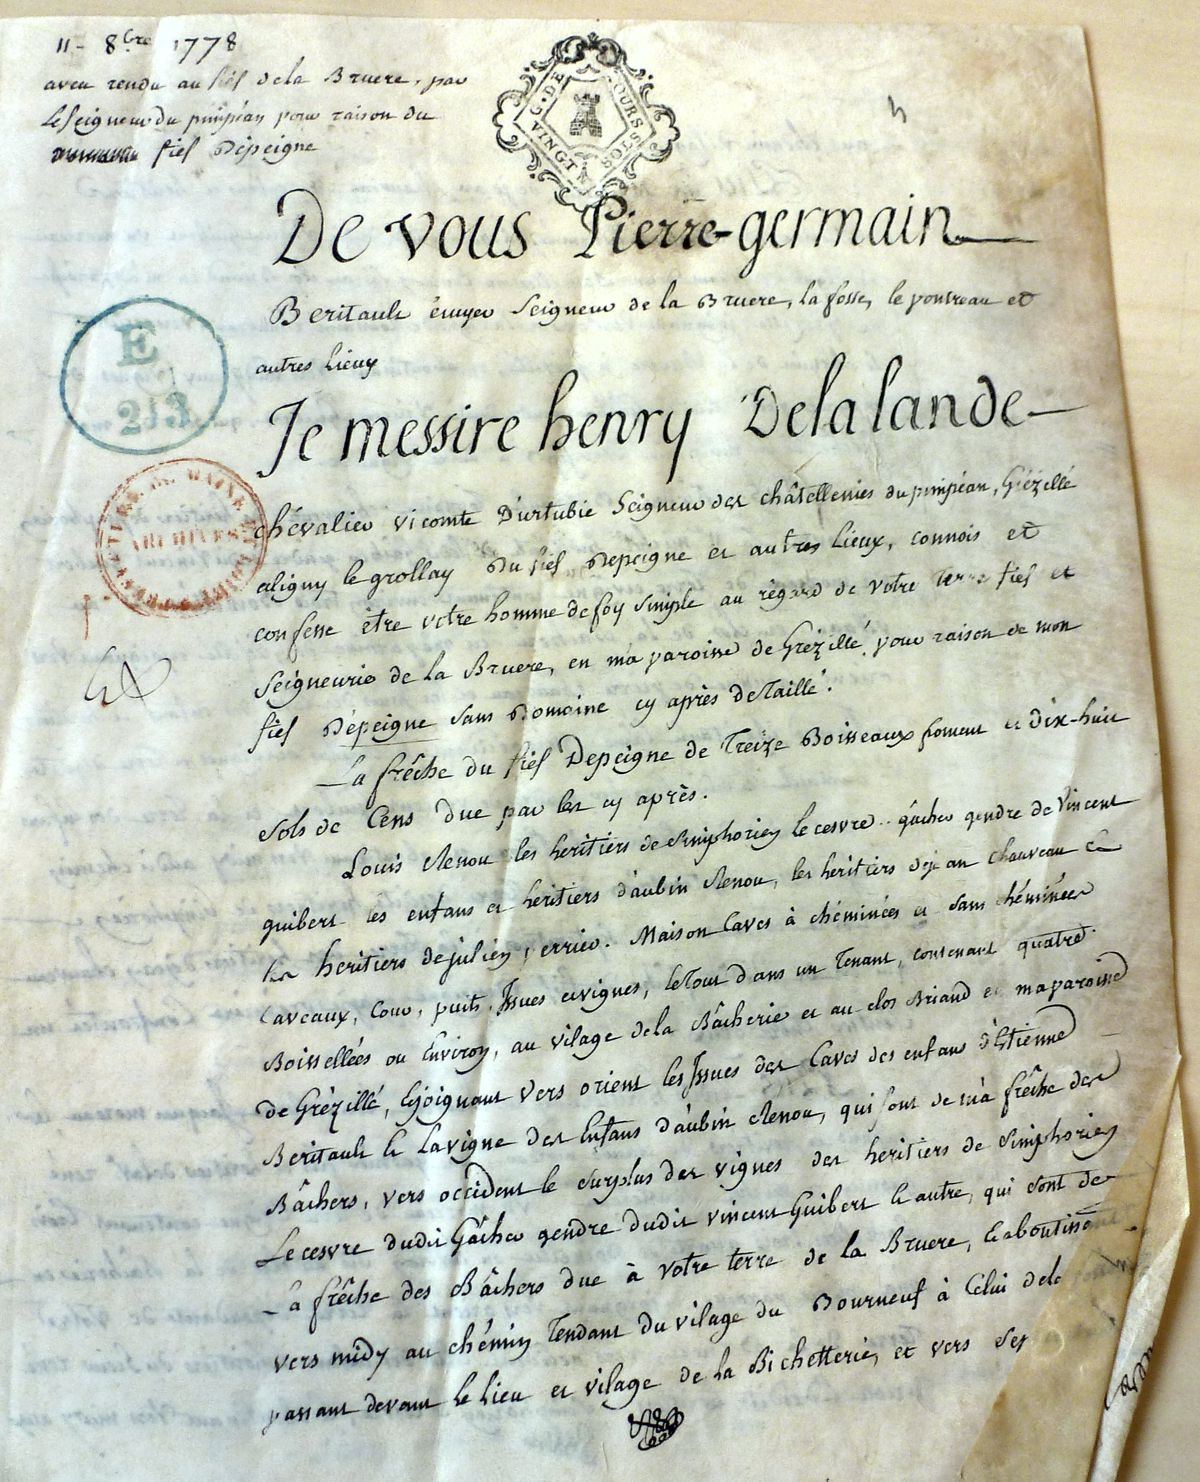 11 - 8bre 1778
aveu rendu au fief dela Bruere, par
Le seigneur du pimpéan pour raison du
fief Dépeigne
G. DE TOURS
VINGT SOLS
De vous Pierre-germain
Beritault écuyer Seigneur de la Bruere, la fosse, le pontreau et
autres Lieux
E
213
Je messire henry Delalande
ARCHIVES
chévalier vicomte D'urtubie Seigneur des châtellenies du pimpéan, Grézillé
aligny le grollay Du fief Depeigne et autres Lieux, connois et
confesse être votre homme de foy simple au régard de votre Terre fief et
Seigneurie de la Bruere, en ma paroisse de Grézillé, pour raison de mon
fief Dépeigne sans Domaine cy après detaillé.
La frêche du fief Depeigne de Treize Boisseaux froment et dix-huit
sols de Cens Due par les cy après.
Louis Renou les heritiers de Simphorien Le cesvre gâcher gendre de Vincent
guibert les enfans et heritiers d'aubin Renou, les heritiers dejean chauveau et
les heritiers dejulien perrier. Maison Caves à chéminées et sans chéminées
Caveaux, Cour, puits, Issues et vignes, le Tout dans un Tenant, contenant quatre
Boissellées ou Environ, au vilage dela Bâcherie et au clos Briand en ma paroisse
de Grézillé, Cejoignant vers orient les Issues des Caves des enfans d'Etienne
Beritault et La vigne des Enfans d'aubin Renou, qui sont de ma frêche des
Bâchers, vers occident le surplus des vignes des heritiers de Simphorien
Le cesvre dudit Gâcher gendre dudit vincent Guibert et autre, qui sont de
La frêche des Bâchers due à votre terre de la Bruere, et aboutissant
vers midy au chémin Tendant du vilage du Bourneuf à Celui dela
passant devant le Lieu et vilage de la Bichetterie, et vers Sep